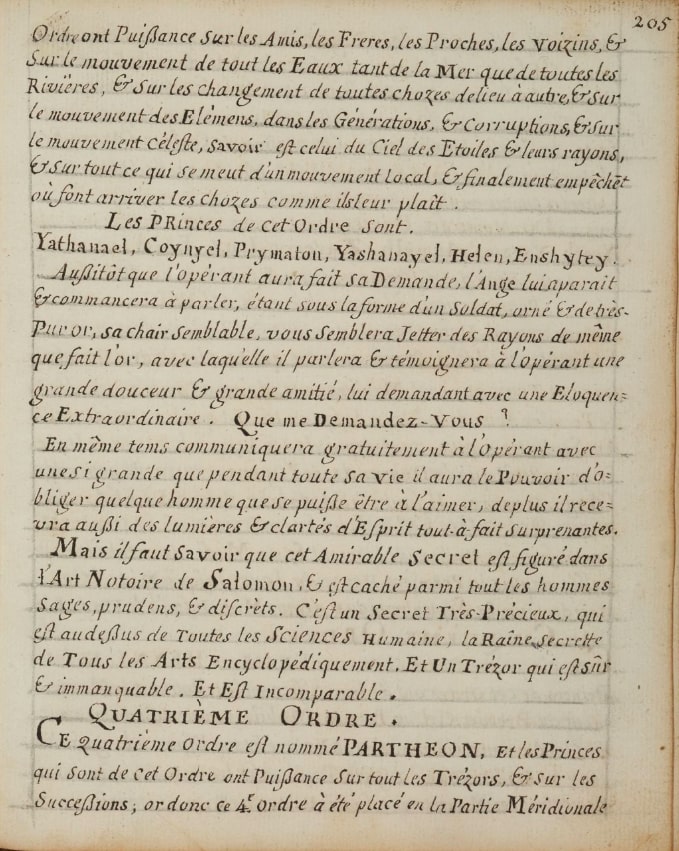 205
Ordre ont Puißance sur les Amis, les Freres, les Proches, les Voizins, &
Sur le mouvement de tout les Eaux tant de la Mer que de toutes les
Rivières, & sur les changement de toutes chozes de lieu à autre, & sur
le mouvement des Elémens, dans les Générations, & Corruptions, & sur
le mouvement Céleste, savoir est celui du Ciel des Etoiles & leurs rayons,
& sur tout ce qui se meut d'un mouvement local, & finalement empêchēt
où font arriver les chozes comme il leur plaît.
Les Princes de cet Ordre sont.
Yathanael, Coynyel, Prymaton, Yashanayel, Helen, Enshytey.
Außitôt que l'opérant aura fait sa Demande, l'Ange lui aparait
& commancera à parler, étant sous la forme d'un Soldat, orné & de très-
Pur or, sa chair semblable, vous semblera Jetter des Rayons de même
que fait l'or, avec laquelle il parlera & témoignera à l'opérant une
grande douceur & grande amitié, lui demandant avec une Eloquen=
ce Extraordinaire. Que me Demandez-Vous ?
En même tems communiquera gratuitement à l'Opérant avec
une si grande que pendant toute sa vie il aura le Pouvoir d'o=
bliger quelque homme que se puiße être à l'aimer, de plus il rece=
vra außi des lumières & clartés d'Esprit tout-à-fait surprenantes.
Mais il faut savoir que cet Amirable Secret est figuré dans
l'Art Notoire de Salomon, & est caché parmi tout les hommes
Sages, prudens, & discrèts. C'est un Secret Très-Précieux, qui
est au deßus de Toutes les Sciences Humaine, la Raîne secrette
de Tous les Arts Encyclopédiquement, Et Un Trézor qui est sûr
& immanquable. Et Est Incomparable.
QUATRIÈME ORDRE.
CE quatrieme Ordre est nommé PARTHEON, Et les Princes
qui sont de cet Ordre ont Puißance sur tout les Trézors, & sur les
Succeßions; or donc ce 4e. Ordre à été placé en la Partie Méridionale